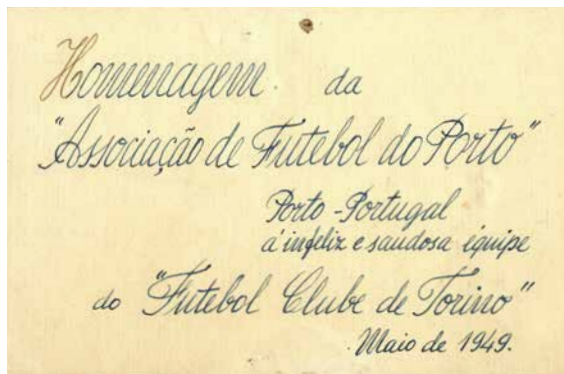 Homenagem da
"Associação de Futebol do Porto"
Porto - Portugal
á infeliz e saudosa équipe
do "Futebol Clube de Torino"
Maio de 1949.